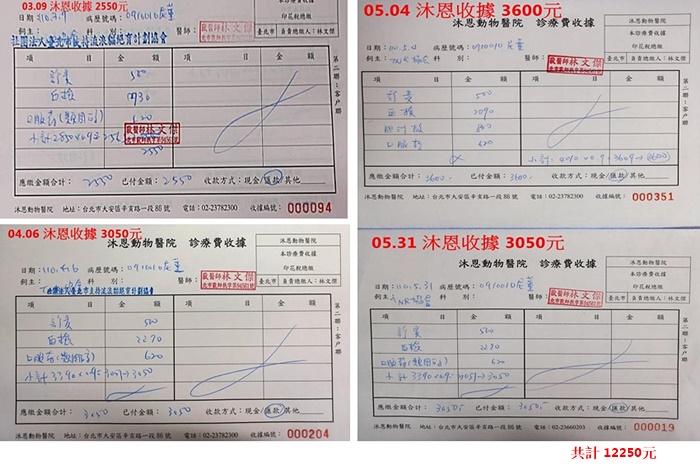 03.09 沐恩收據 2550元
日期：110.3.9 病歷號碼：0910010
飼主： 科別：
印花稅總繳
臺北市 負責總繳人：林文傑
社團法人臺北市支持流浪貓絕育計劃協會
獸醫師林文傑
項 金額 項 金額
診費 500
血檢
口服藥 620
小計 2850x0.9=
2550
應繳金額合計：2550 已付金額：2550 收款方式：現金/匯款/其他
沐恩動物醫院 地址：台北市大安區辛亥路一段86號 電話：02-23782300 收據編號：000094
第二聯：客戶聯
05.04 沐恩收據 3600元
沐恩動物醫院 診療費收據
沐恩動物醫院
本診療費收據
印花稅總繳
臺北市 負責總繳人：林文傑
日期：110.5.4 病歷號碼：0910010
飼主： 科別： 醫師：
獸醫師林文傑
項 金額 項 金額
診費 500
血檢 2090
口服藥 620
小計：4010x0.9=3609→3600
應繳金額合計：3600.- 已付金額：3600.- 收款方式：現金/匯款/其他
沐恩動物醫院 地址：台北市大安區辛亥路一段86號 電話：02-23782300 收據編號：000351
第二聯：客戶聯
04.06 沐恩收據 3050元
沐恩動物醫院 診療費收據
沐恩動物醫院
本診療費收據
印花稅總繳
臺北市 負責總繳人：林文傑
日期：110.4.6 病歷號碼：0910010
飼主： 科別： 醫師：
獸醫師林文傑
社團法人臺北市支持流浪貓絕育計劃協會
項 金額 項 金額
診費 500
血檢 2270
口服藥 620
小計 3390x0.9=3051→3050
應繳金額合計：3050 已付金額：3050 收款方式：現金/匯款/其他
沐恩動物醫院 地址：台北市大安區辛亥路一段86號 電話：02-23782300 收據編號：000204
第二聯：客戶聯
05.31 沐恩收據 3050元
沐恩動物醫院 診療費收據
沐恩動物醫院
本診療費收據
印花稅總繳
臺北市 負責總繳人：林文傑
日期：110.5.31 病歷號碼：0910010
飼主： 科別： 醫師：
獸醫師林文傑
項 金額 項 金額
診費 500
血檢 2270
口服藥 620
小計 3390x0.9=3051→3050
應繳金額合計：3050.- 已付金額：3050.- 收款方式：現金/匯款/其他
沐恩動物醫院 地址：台北市大安區辛亥路一段86號 電話：02-23660203 收據編號：000019
第二聯：客戶聯
共計 12250元